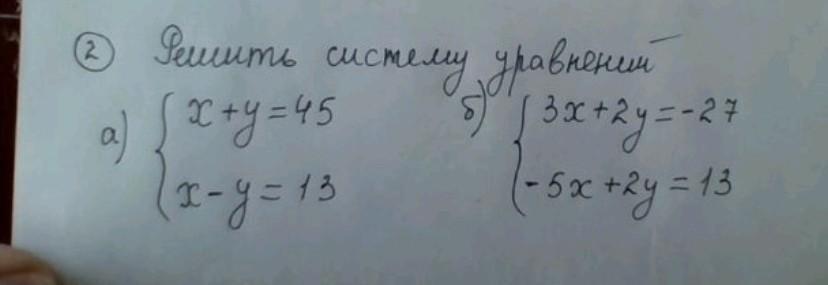 ② Решить систему уравнений
а) { x+y=45
x-y=13
б) { 3x+2y=-27
-5x+2y=13